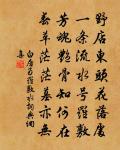 野店東頭花落處
一條流水號羅敷
芳魂艷骨知何在
春草茫茫墓亦無
白居易羅敷水詩